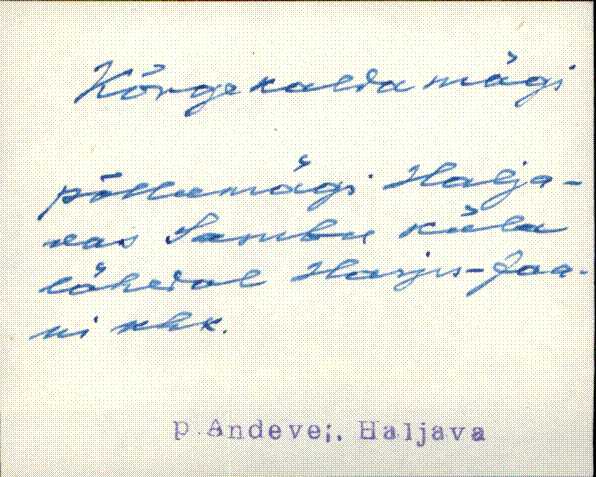 Kõrgekaldamägi
põllumägi Halja-
vas Sambu küla
lähedal Harju-Jaa-
ni khk.
P. Andevei, Haljava